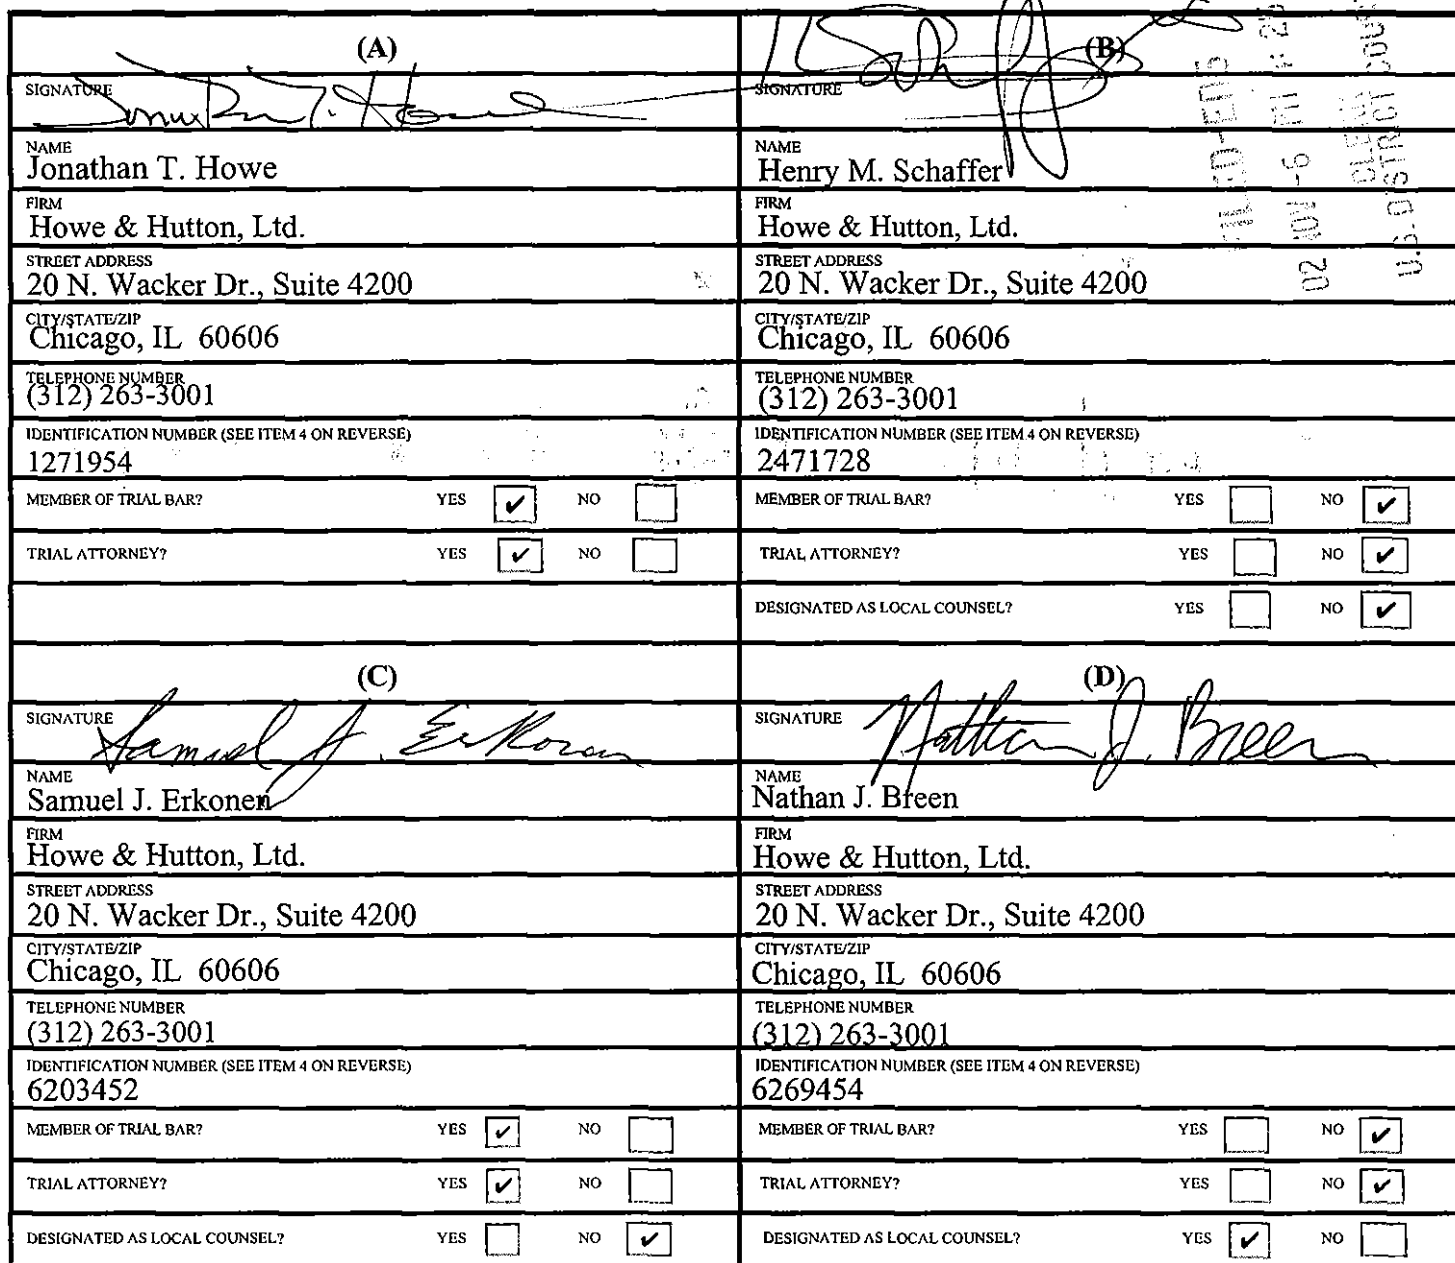 (A)
SIGNATURE Jonathan T. Howe
NAME
Jonathan T. Howe
FIRM
Howe & Hutton, Ltd.
STREET ADDRESS
20 N. Wacker Dr., Suite 4200
CITY/STATE/ZIP
Chicago, IL 60606
TELEPHONE NUMBER
(312) 263-3001
IDENTIFICATION NUMBER (SEE ITEM 4 ON REVERSE)
1271954
MEMBER OF TRIAL BAR? YES ✔ NO
TRIAL ATTORNEY? YES ✔ NO
(B)
SIGNATURE
NAME
Henry M. Schaffer
FIRM
Howe & Hutton, Ltd.
STREET ADDRESS
20 N. Wacker Dr., Suite 4200
CITY/STATE/ZIP
Chicago, IL 60606
TELEPHONE NUMBER
(312) 263-3001
IDENTIFICATION NUMBER (SEE ITEM 4 ON REVERSE)
2471728
MEMBER OF TRIAL BAR? YES NO ✔
TRIAL ATTORNEY? YES NO ✔
DESIGNATED AS LOCAL COUNSEL? YES NO ✔
FILED-ED5
02 NOV -6
CLERK
U.S. DISTRICT COUR
(C)
SIGNATURE Samuel J. Erkonen
NAME
Samuel J. Erkonen
FIRM
Howe & Hutton, Ltd.
STREET ADDRESS
20 N. Wacker Dr., Suite 4200
CITY/STATE/ZIP
Chicago, IL 60606
TELEPHONE NUMBER
(312) 263-3001
IDENTIFICATION NUMBER (SEE ITEM 4 ON REVERSE)
6203452
MEMBER OF TRIAL BAR? YES ✔ NO
TRIAL ATTORNEY? YES ✔ NO
DESIGNATED AS LOCAL COUNSEL? YES NO ✔
(D)
SIGNATURE Nathan J. Breen
NAME
Nathan J. Breen
FIRM
Howe & Hutton, Ltd.
STREET ADDRESS
20 N. Wacker Dr., Suite 4200
CITY/STATE/ZIP
Chicago, IL 60606
TELEPHONE NUMBER
(312) 263-3001
IDENTIFICATION NUMBER (SEE ITEM 4 ON REVERSE)
6269454
MEMBER OF TRIAL BAR? YES NO ✔
TRIAL ATTORNEY? YES NO ✔
DESIGNATED AS LOCAL COUNSEL? YES ✔ NO